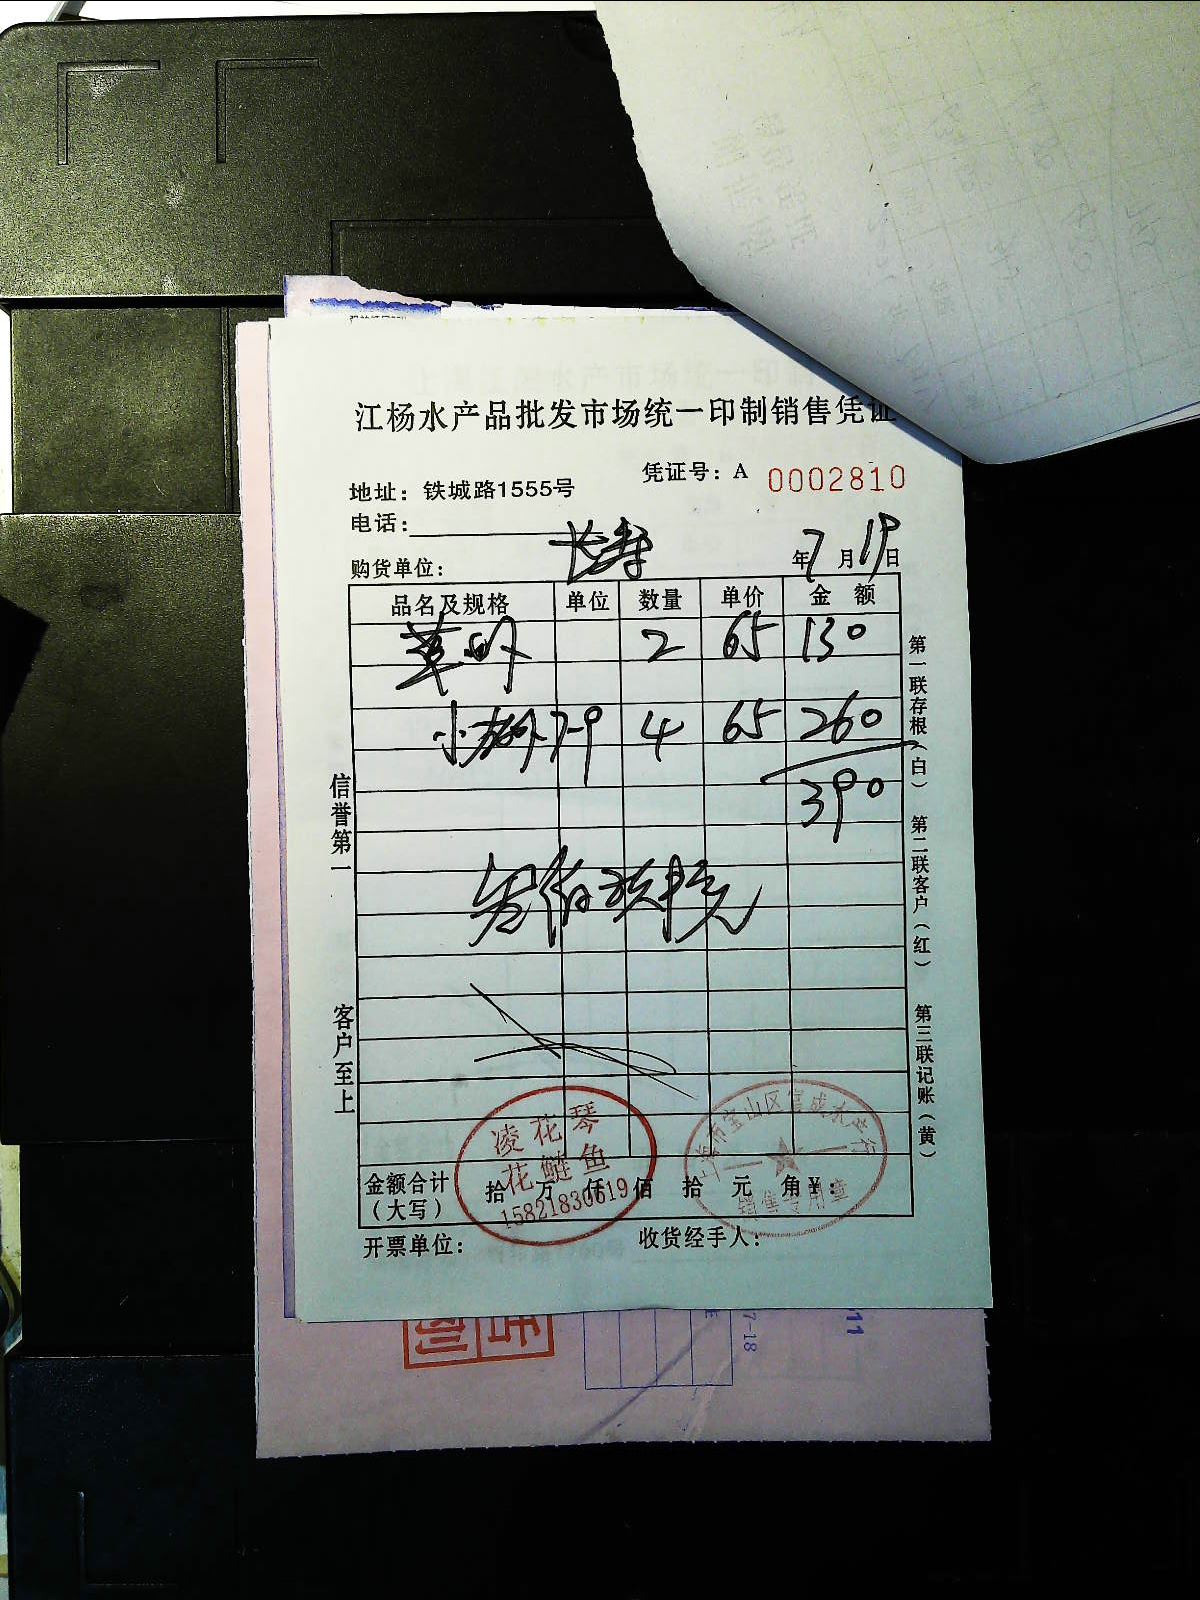 江杨水产品批发市场统一印制销售凭证
凭证号：A 0002810
地址：铁城路1555号
电话：
购货单位： 长寿 年7月19日
品名及规格 单位 数量 单价 金额
2 65 130
7-9 4 65 260
390
信誉第一
客户至上
第一联存根（白）
第二联客户（红）
第三联记账（黄）
凌花琴
花鲢鱼
15821830619
销售专用章
金额合计（大写） 拾 万 仟 佰 拾 元 角 ¥：
开票单位： 收货经手人：
7-18
11